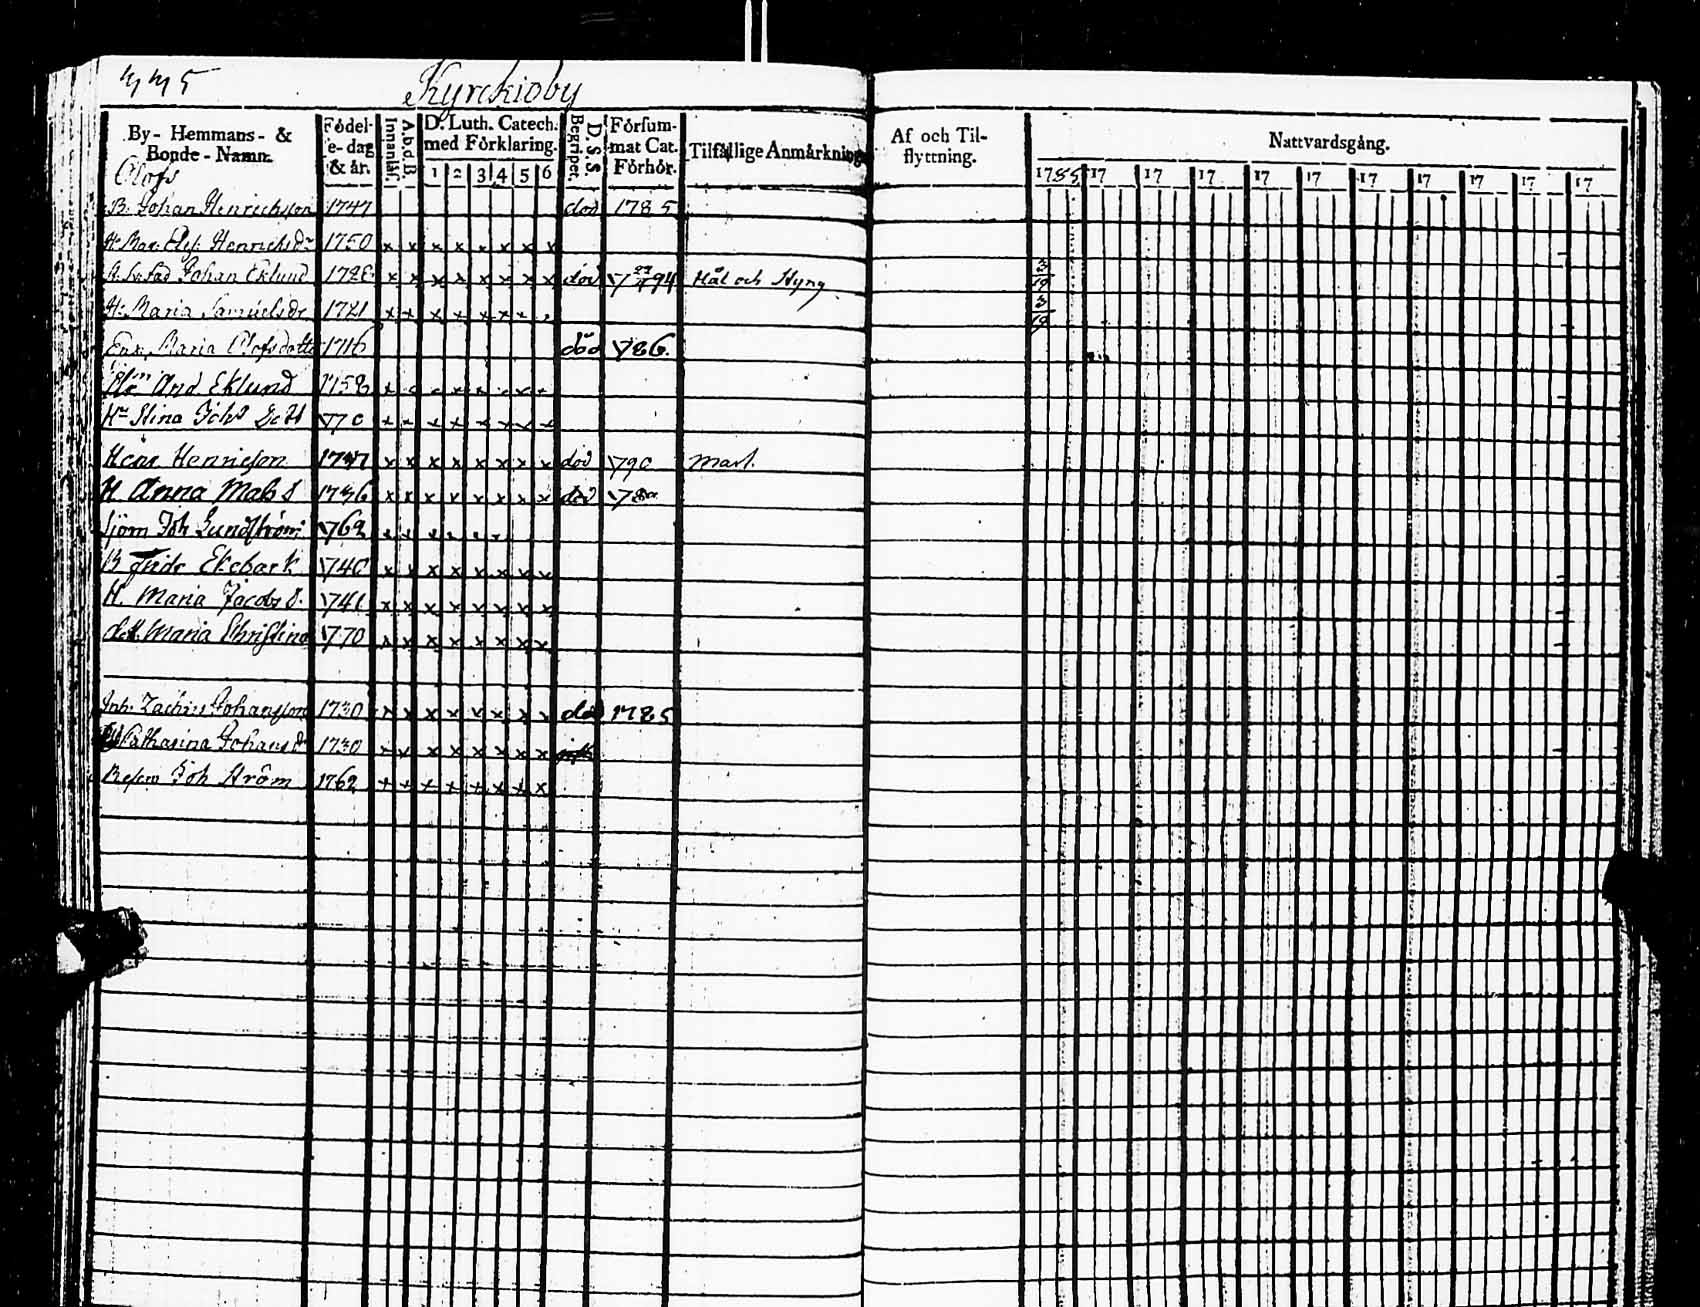 335 Kyrckioby
By- Hemmans- & Bonde-Namn. Födel-e-dag & år. Innanläs. A.b.d.B. D. Luth. Catech. med Förklaring. 1 2 3 4 5 6 Begriper. D.S.S. Försum-mat Cat. Förhör. Tilfällige Anmärkning Af och Til-flyttning. Nattvardsgång.
1785 17 17 17 17 17 17 17 17 17 17
Olofs
B. Johan Henrichsson 1747 död 1785
Henrichsdr 1750 x x x x x x x x
Johan Eklund 1728 x x x x x x x x död 94 Hål och Styng 3/19
Hu Maria Samuelsdr 1721 x x x x x x x 3/19
Enk. Maria Olofsdotter 1716 död 786.
And Eklund 1758
Hu Stina Johs Dott 770 x x x x x x x x
Henr Henricson 1747 x x x x x x x x död 790
H Anna Mats d 1736 x x x x x x x x död
Joh Lundström 1762
B Ekebark 1740 x x x x x x x x
H. Maria Jacobs d. 1741 x x x x x x x x
dott. Maria Christina 1770 x x x x x x x x
Inh. Zachris Johansson 1730 x x x x x x x x död 1785
Catharina Johansd 1730 x x x x x x x x
Joh Ström 1762 x x x x x x x x